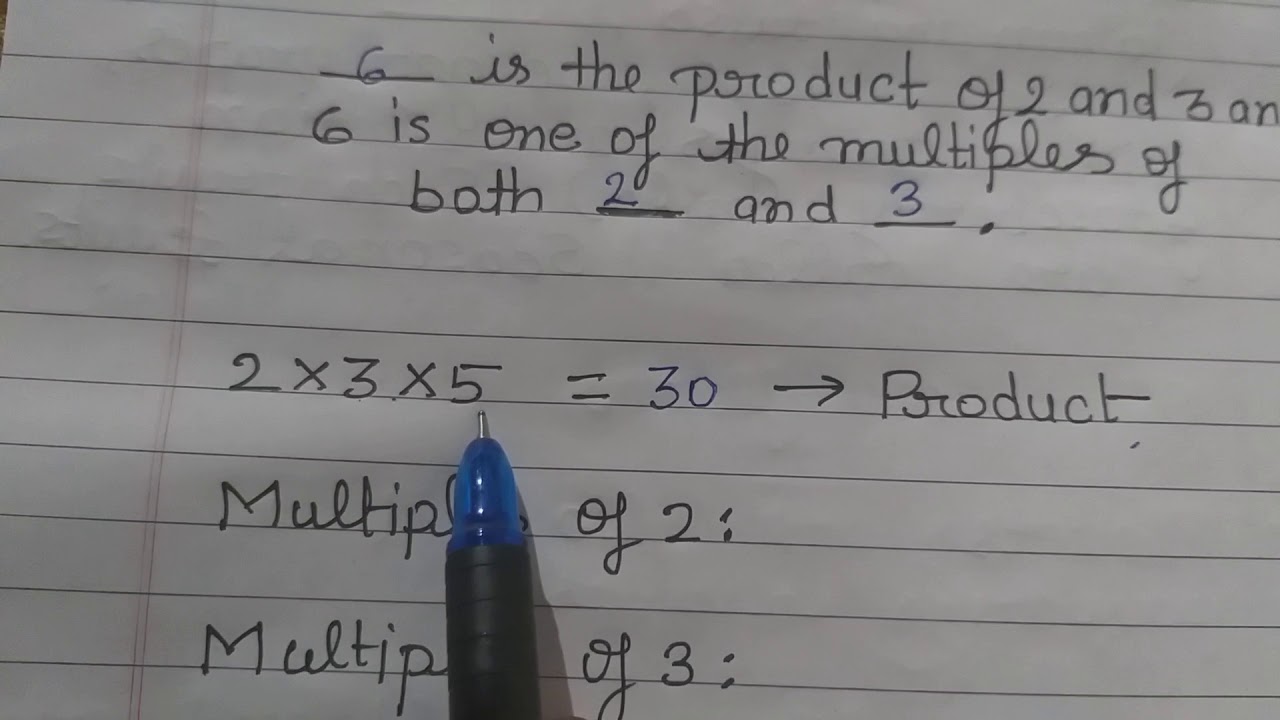 6 is the product of 2 and 3 an
6 is one of the multiples of
both 2 and 3.
2×3×5 = 30 → Product
of 2:
of 3: